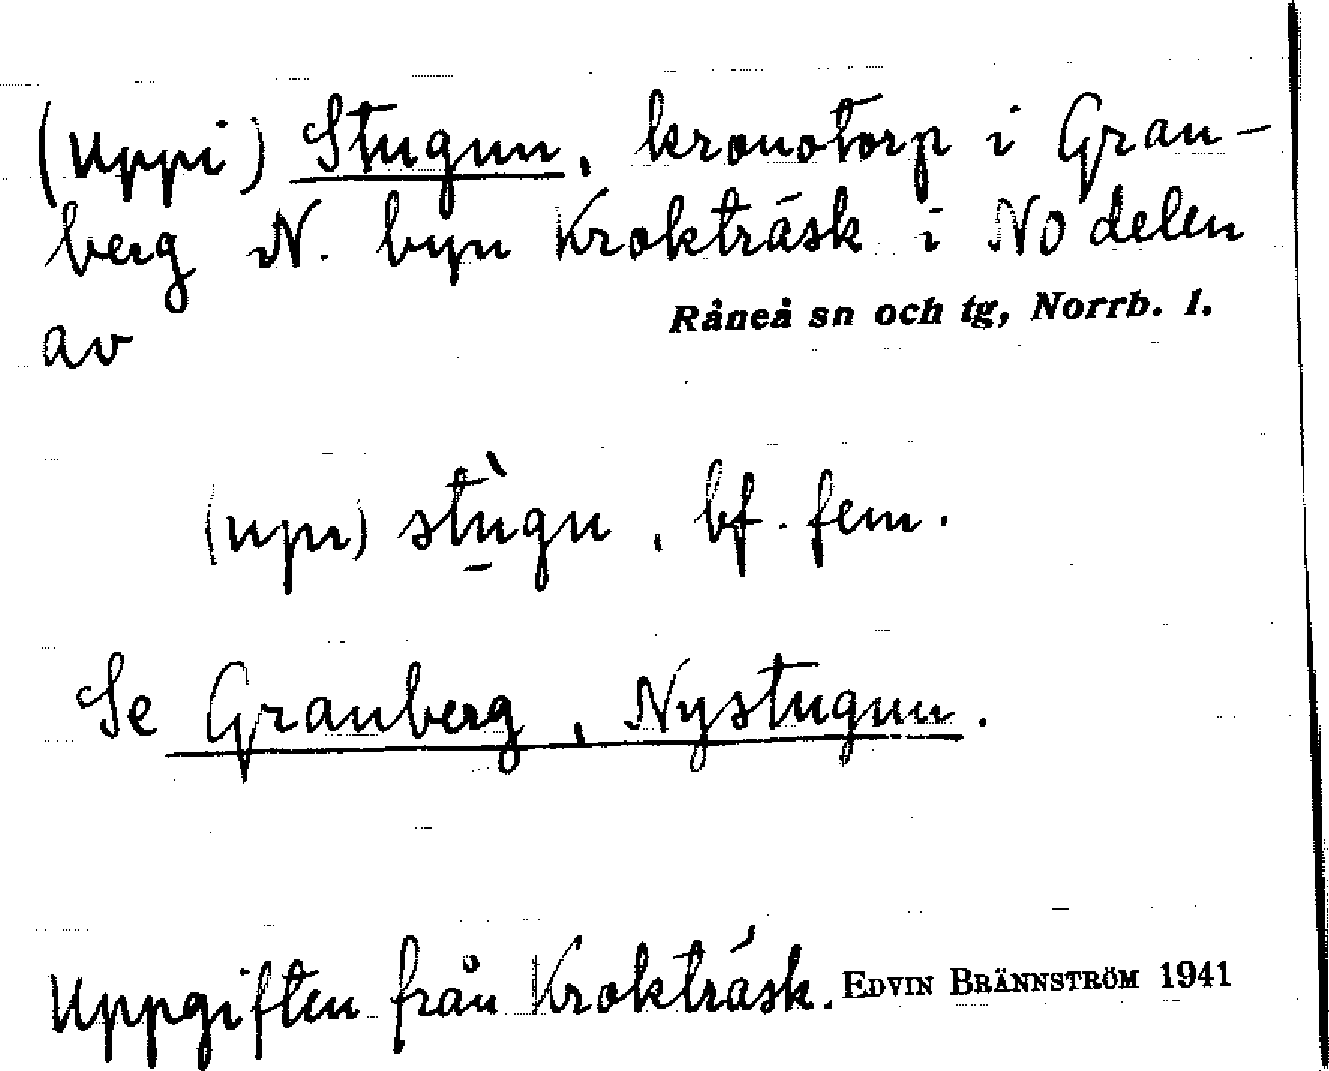 (Uppi) Stugun, kronotorp i Gran-
berg N. byn Krokträsk i NO delen
av Råneå sn och tg, Norrb. l.
(upı) stùgu, bf. fem.
Se Granberg, Nystugun.
Uppgiften från Krokträsk. EDVIN BRÄNNSTRÖM 1941